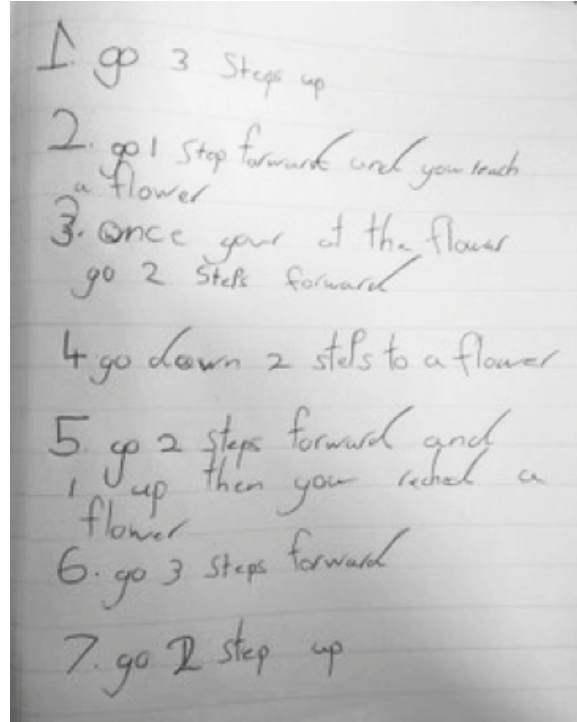 1. go 3 Steps up
2. go 1 Step forward and you reach
a flower
3. Once your at the flower
go 2 Steps forward
4 go down 2 steps to a flower
5. go 2 steps forward and
1 up then you reched a
flower
6. go 3 steps forward
7. go step up